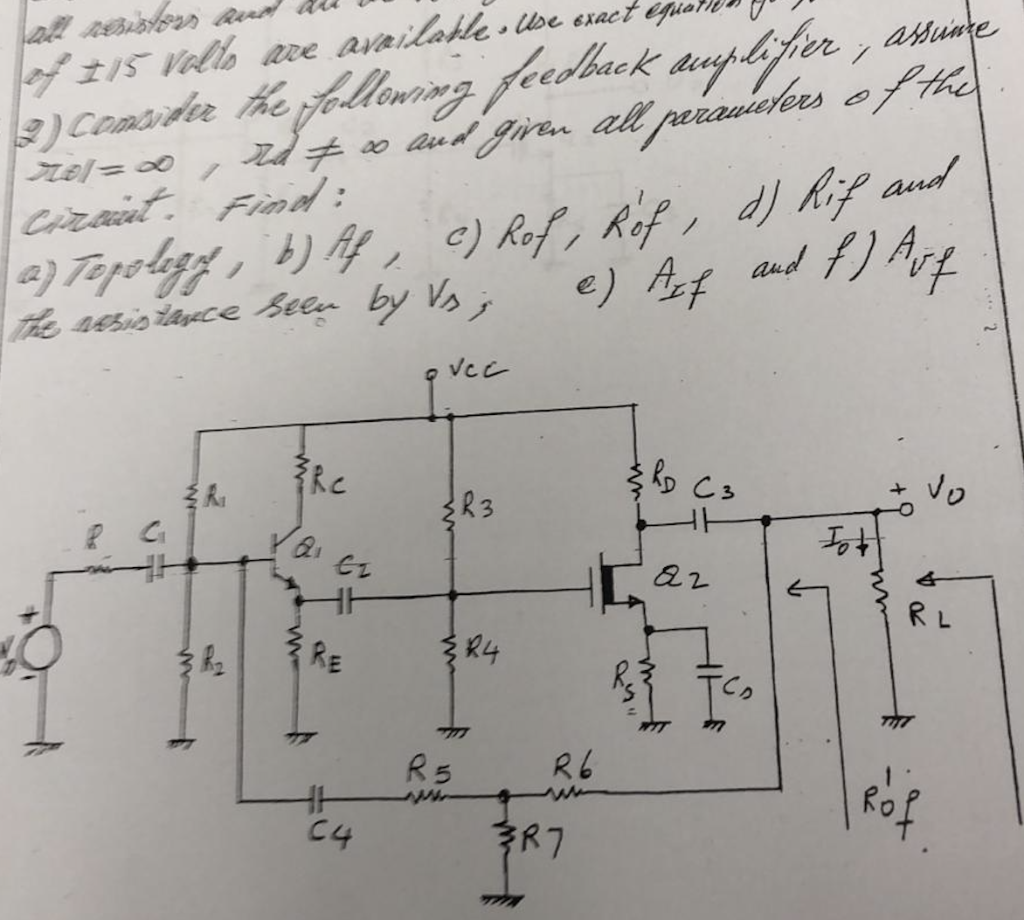 all resistors and
of ±15 Volts are available. Use exact equation
2) Consider the following feedback amplifier, assume
ro1 = ∞, rd ≠ ∞ and given all parameters of the
circuit. Find:
a) Topology, b) Af, c) Rof, R'of, d) Rif and
the resistance seen by Vs; e) AIf and f.) AVf
VCC
R1
RC
R3
RD C3
+ VO
R C1
Q1
C2
Q2
Io
RL
+
-
R2
RE
R4
Rs
Cs
R5 R6
C4
R7
R'of